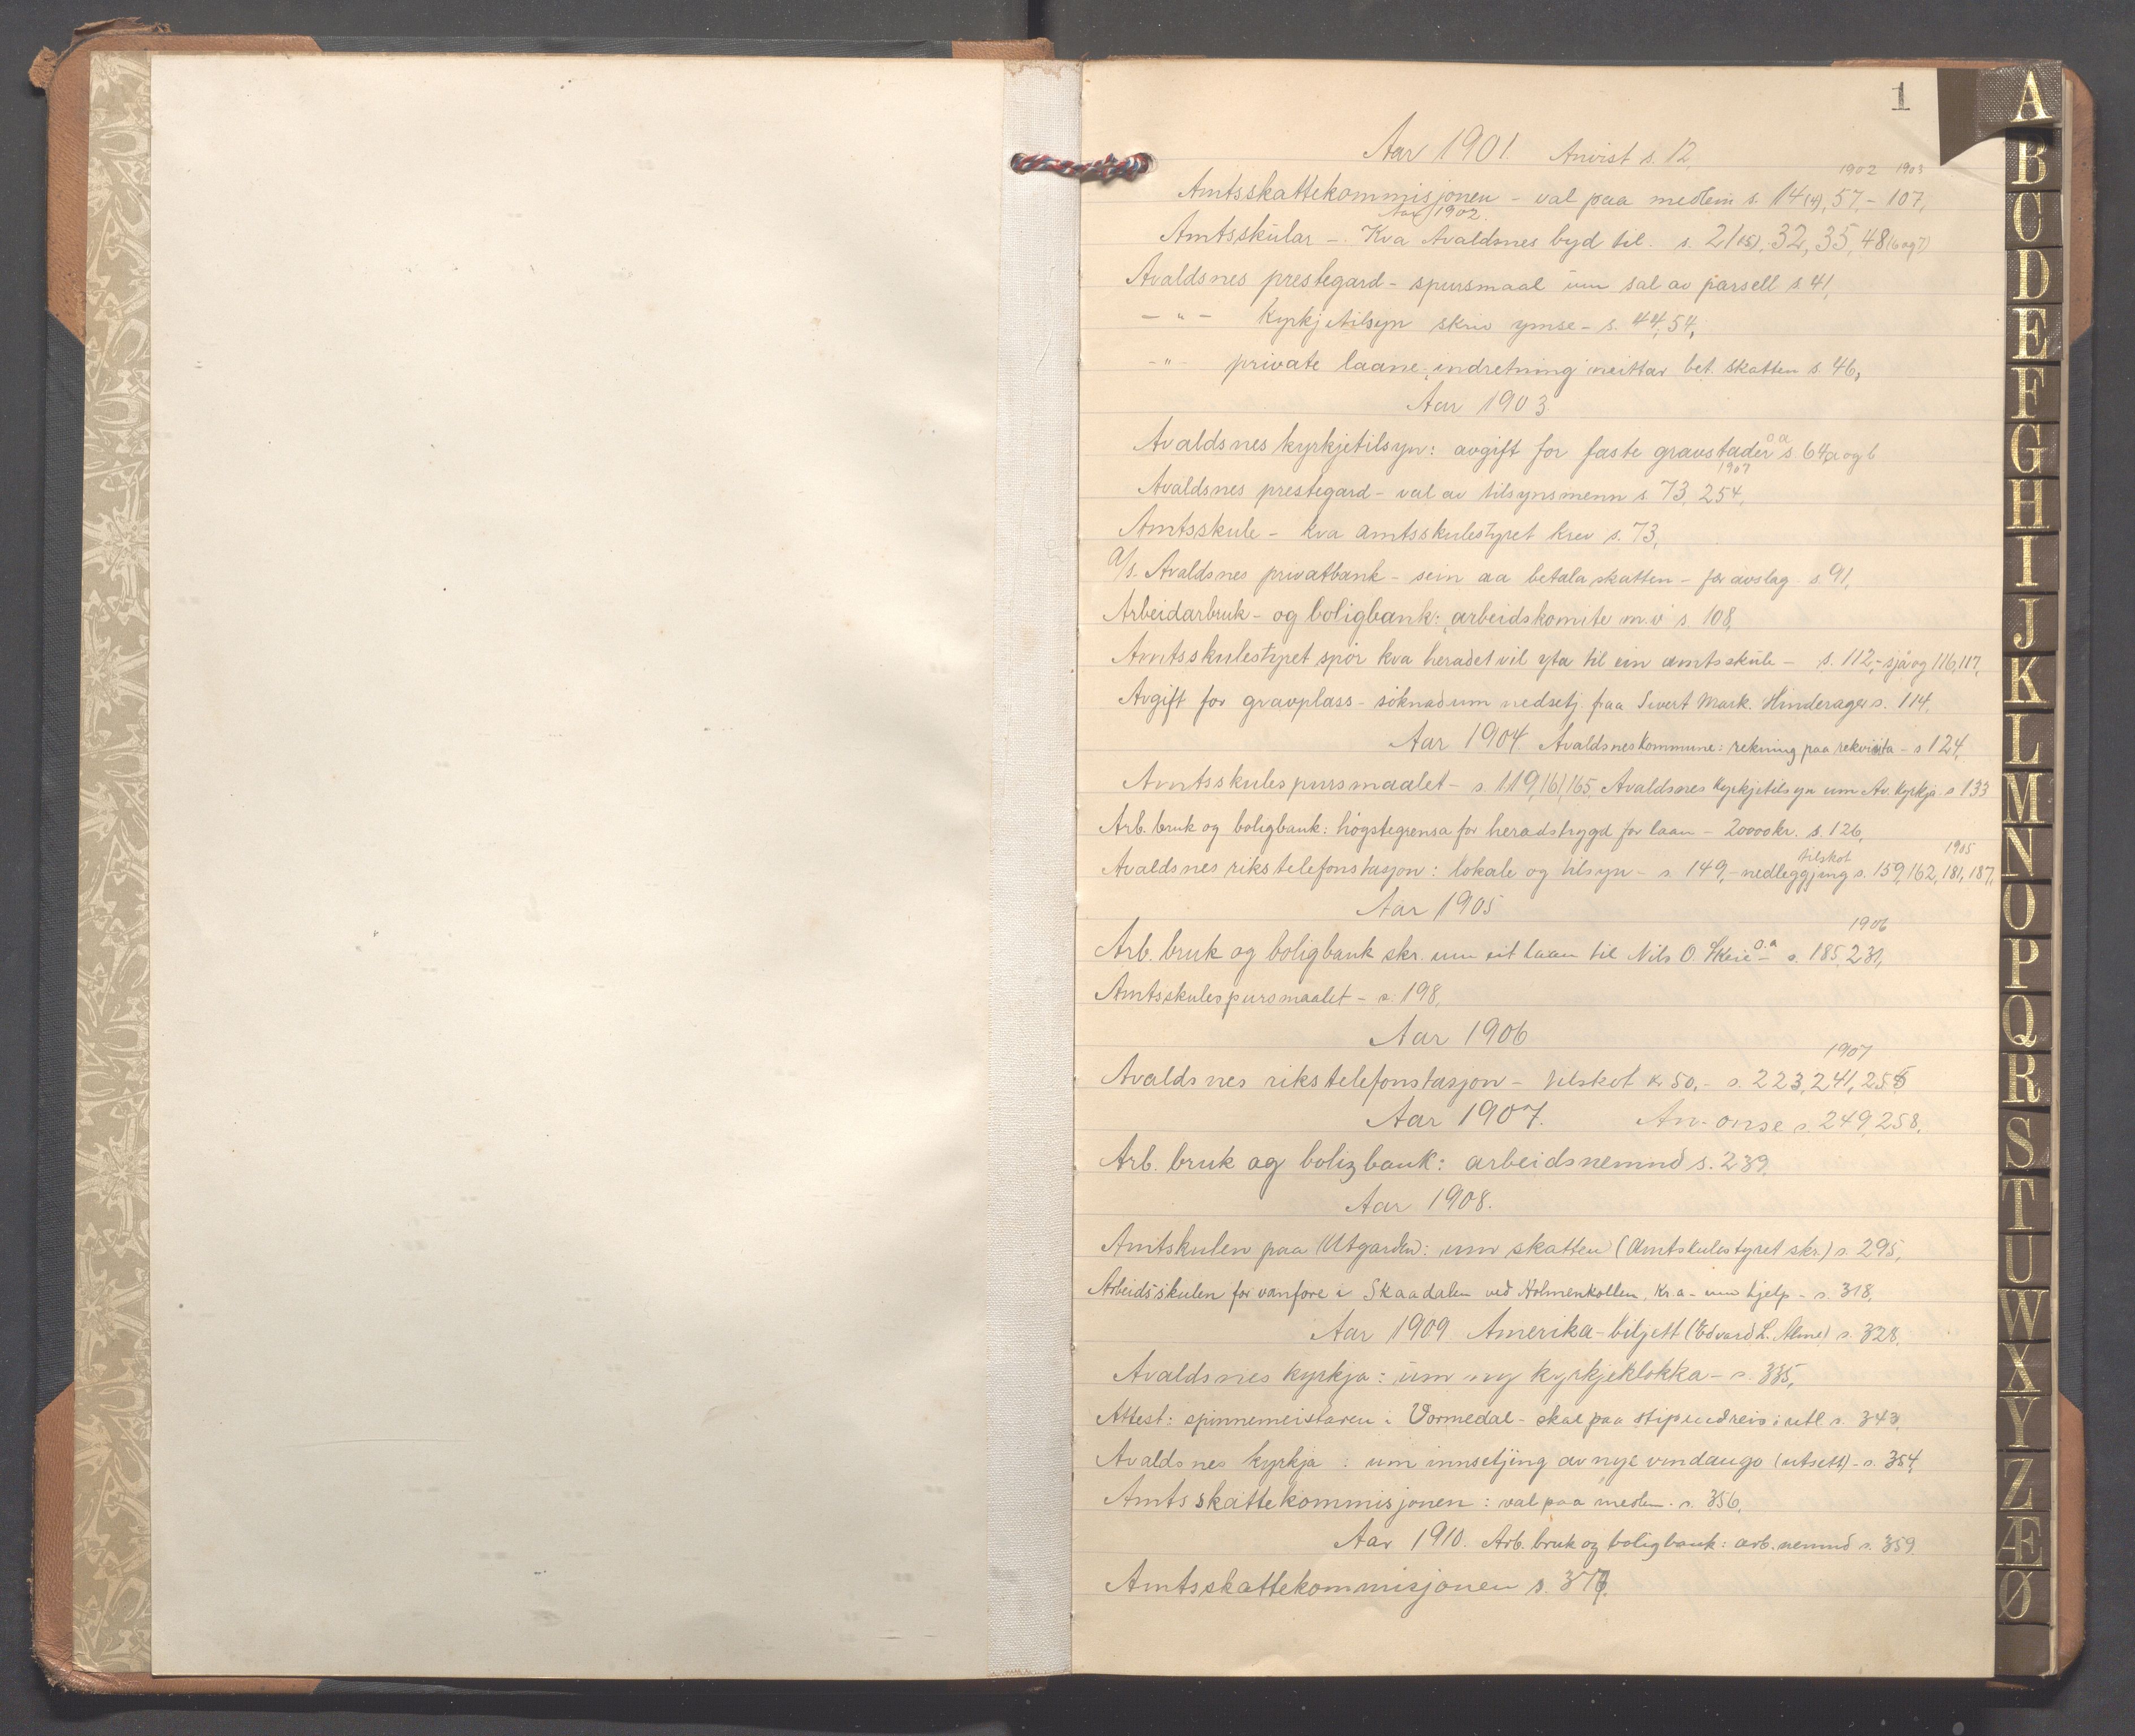 1
Aar 1901. Anvist s. 12,
1902 1903
Amtsskattekommisjonen - val paa medlem s. 14(4), 57, - 107,
Aar 1902.
Amtsskular - Kva Avaldsnes byd til. s. 21(15), 32, 35, 48(6 og 7)
Avaldsnes prestegard - spursmaal um sal av parsell s. 41,
- " - Kyrkjetilsyn skriv ymse - s. 44, 54,
- " - private laane-indretning neittar bet. skatten s. 46,
Aar 1903
Avaldsnes kyrkjetilsyn: avgift for faste gravstader o.a. s. 64 a og b
1907
Avaldsnes prestegard - val av tilsynsmenn s. 73, 254,
Amtsskule - kva amtsskulestyret krev s. 73,
A/s. Avaldsnes privatbank - sein aa betala skatten - fær avslag s. 91,
Arbeidarbruk- og boligbank: arbeidskomite m.v. s. 108,
Amtsskulestyret spør kva heradet vil yta til ein amtsskule - s. 112, - sjå og 116, 117,
Avgift for gravplass - søknad um nedsetj. fraa Sivert Mark. Hinderager s. 114,
Aar 1904. Avaldsnes kommune: rekning paa rekvisita - s 124,
Amtsskulespursmaalet - s. 119, 161, 165, Avaldsnes kyrkjetilsyn um Av. kyrkja s 133
Arb. bruk og boligbank: høgstegrensa for heradstrygd for laan - 20000 kr. s. 126,
tilskot 1905
Avaldsnes rikstelefonstasjon: lokale og tilsyn - s. 149, - nedleggjing s. 159, 162, 181, 187,
Aar 1905
1906
Arb. bruk og boligbank skr. um eit laan til Nils O. Skeie o.a - s. 185, 231,
Amtsskulespursmaalet - s. 198,
Aar 1906
1907
Avaldsnes rikstelefonstasjon - tilskot kr 50,- s. 223, 241, 255
Aar 1907. Annonse s. 249, 258,
Arb. bruk og boligbank: arbeidsnemnd s. 239,
Aar 1908.
Amtskulen paa Utgarden: um skatten (Amtskulestyret skr.) s. 295,
Arbeidsskulen for vanføre i Skaadalen ved Holmenkollen, Kr.a - um hjelp - s. 318,
Aar 1909 Amerika-biljett (Edvard L. Alme) s. 328,
Avaldsnes kyrkja: um ny kyrkjeklokka - s. 335,
Attest: spinnemeistaren i Vormedal - skal paa stipendreis i utl. s. 343,
Avaldsnes kyrkja: um innsetjing av nye vindaugo (utsett) - s. 354,
Amtsskattekommisjonen: val paa medlem. s. 356,
Aar 1910. Arb. bruk og boligbank: arb. nemnd s. 359,
Amtsskattekommisjonen s.
A
B
C
D
E
F
G
H
I
J
K
L
M
N
O
P
Q
R
S
T
U
W
X
Y
Z
Æ
Ø